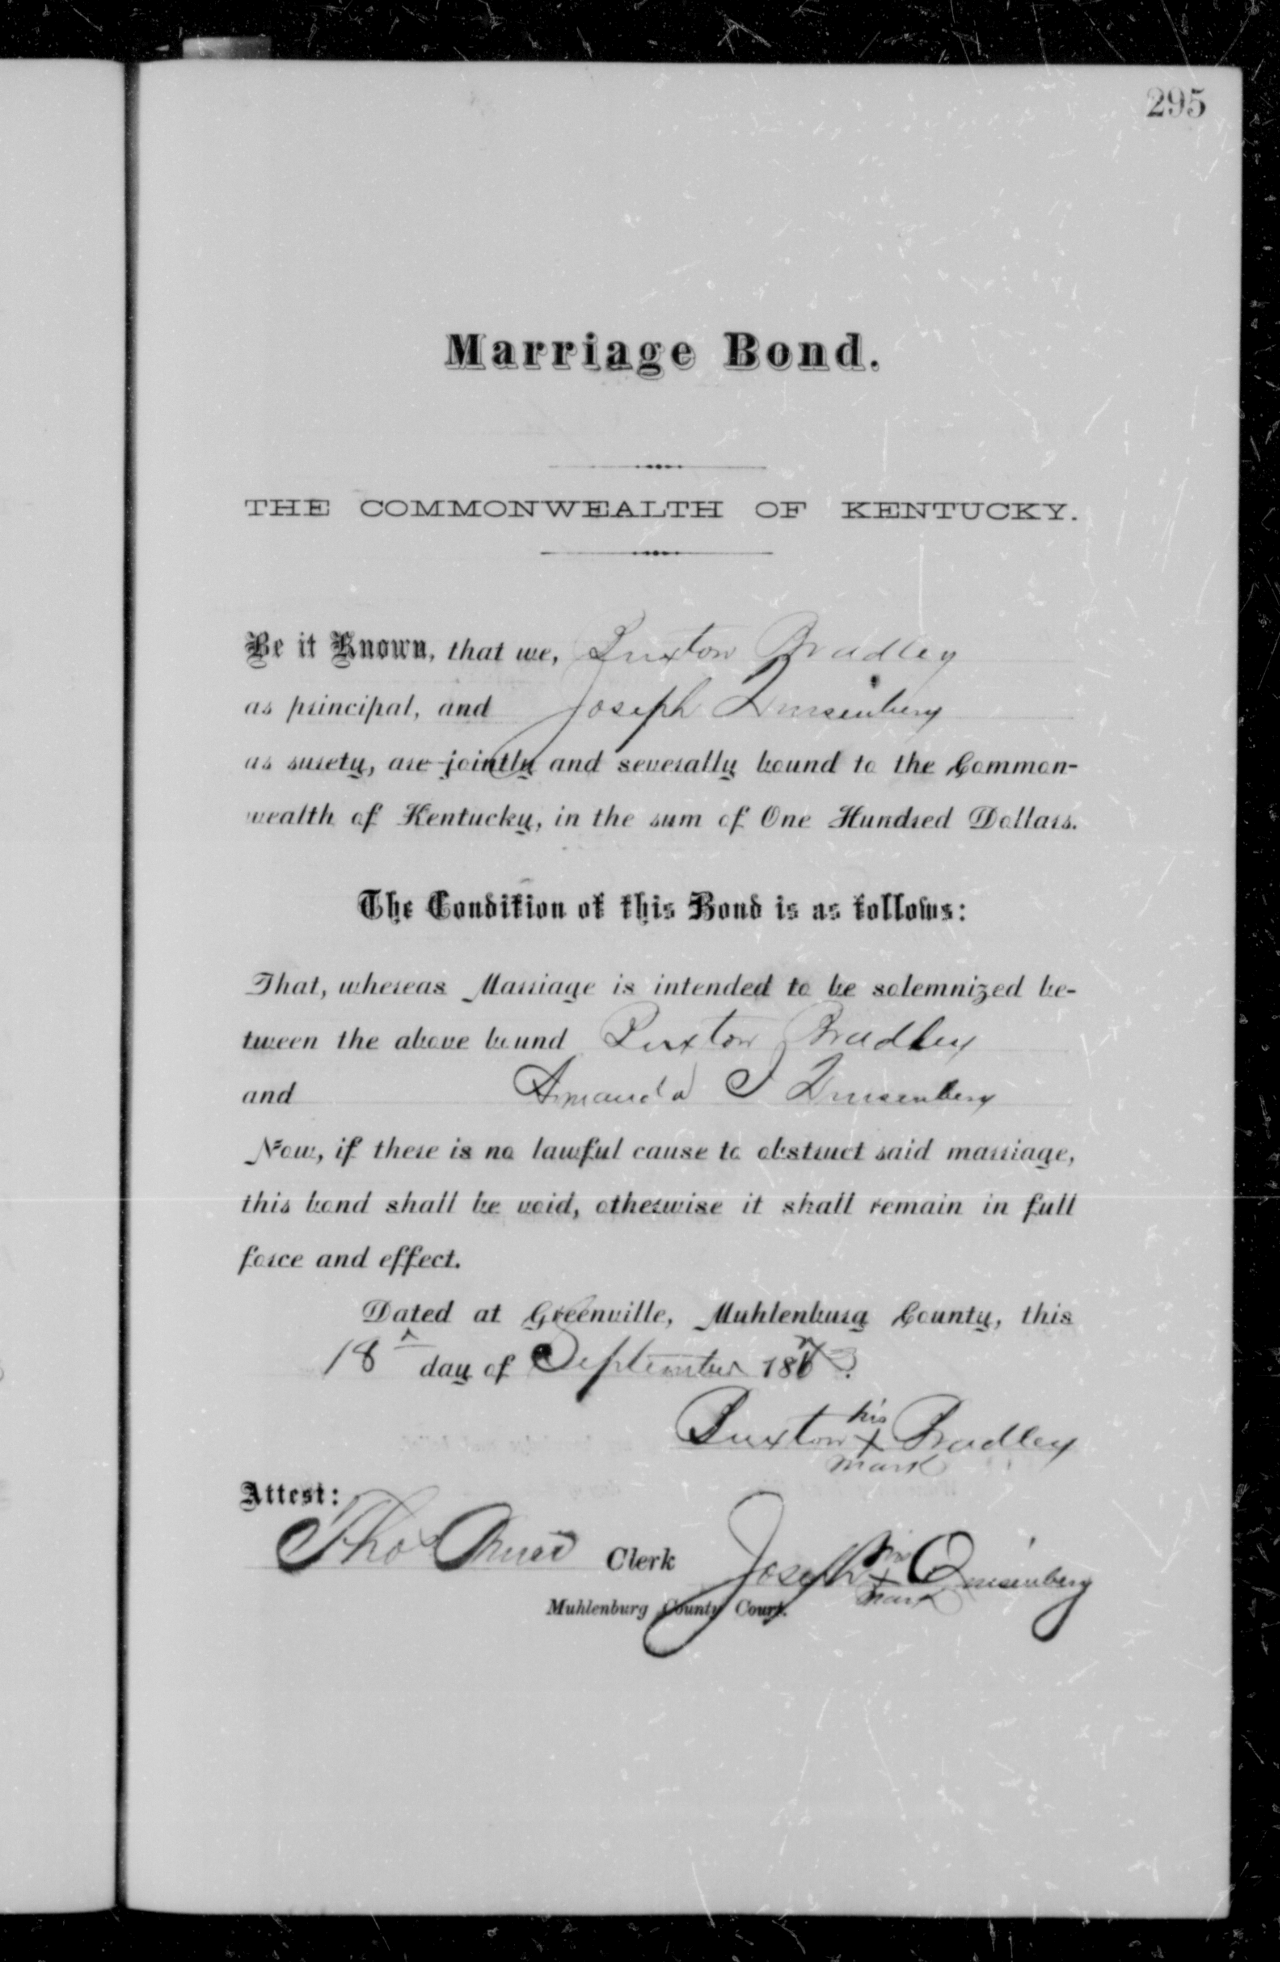 295
Marriage Bond.
THE COMMONWEALTH OF KENTUCKY.
Be it Known, that we, Buxton Bradley
as principal, and Joseph Quisenberry
as surety, are jointly and severally bound to the Common-
wealth of Kentucky, in the sum of One Hundred Dollars.
The Condition of this Bond is as follows:
That, whereas Marriage is intended to be solemnized be-
tween the above bound Buxton Bradley
and Amanda J Quisenberry
Now, if there is no lawful cause to obstruct said marriage,
this bond shall be void, otherwise it shall remain in full
force and effect.
Dated at Greenville, Muhlenburg County, this
18 day of September 1873.
Buxton his x mark Bradley
Attest:
Tho Bruce Clerk Joseph his x mark Quisenberry
Muhlenburg County Court.